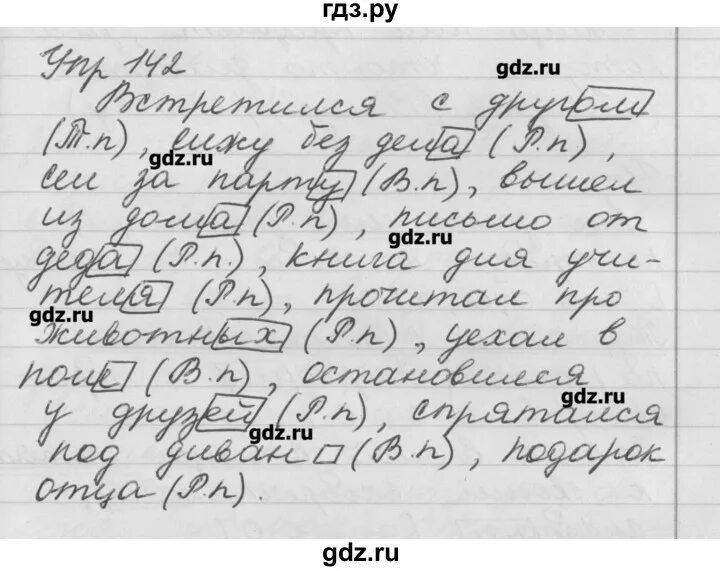 гдз.ру
Упр 142
gdz.ru
Встретился с другом
(Т.п), сижу без дела (Р.п),
gdz.ru
сел за парту (В.п), вышел
из дома (Р.п), письмо от
gdz.ru
деда (Р.п.), книга для учи-
теля (Р.п), прочитал про
gdz.ru
животных (Р.п), уехал в
gdz.ru
поле (В.п), остановился
gdz.ru
у друзей (Р.п), спрятался
gdz.ru
под диван (В.п), подарок
отца (Р.п).
gdz.ru